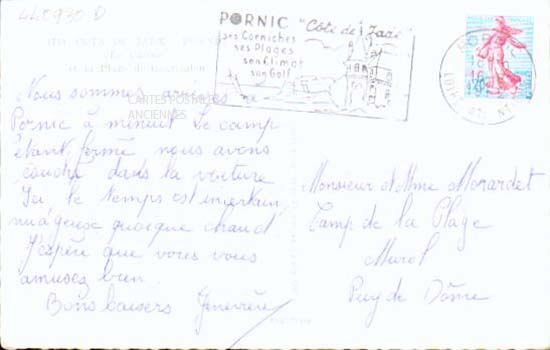 44C930 D
PORNIC "Côte de Jade"
ses Corniches
ses Plages
son Climat
son Golf
CARTES POSTALES
ANCIENNES
Nous sommes arrivés
Pornic à minuit le camp
étant fermé nous avons
couché dans la voiture
Ici le temps est incertain,
nuageux quoique chaud
J'espère que vous vous
amusez bien
Bons baisers Geneviève
Monsieur et Mme Morardet
Camp de la Plage
Murol
Puy de Dôme